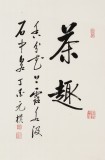 茶趣
香分花上露水汲
石中泉丁亥元